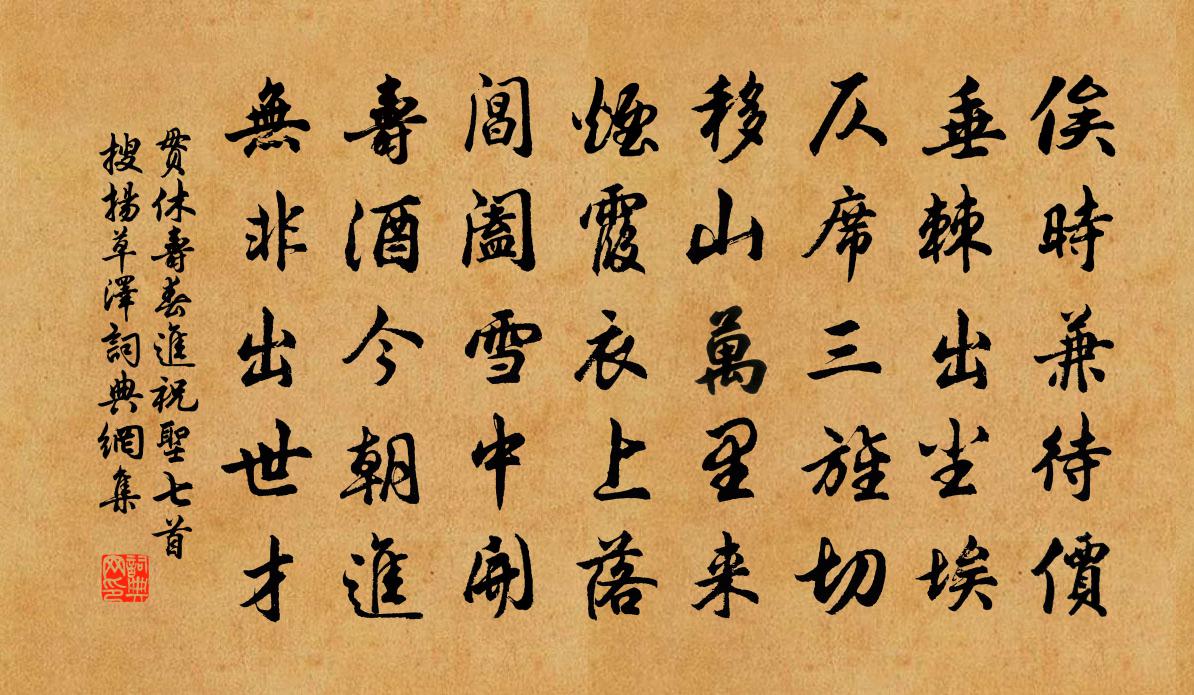 俟時兼待價
垂棘出尘埃
仄席三旌切
移山萬里来
煙霞衣上落
閶闔雪中開
壽酒今朝進
無非出世才
貫休壽春進祝聖七首
搜揚草澤詞典網集
詞典
网印